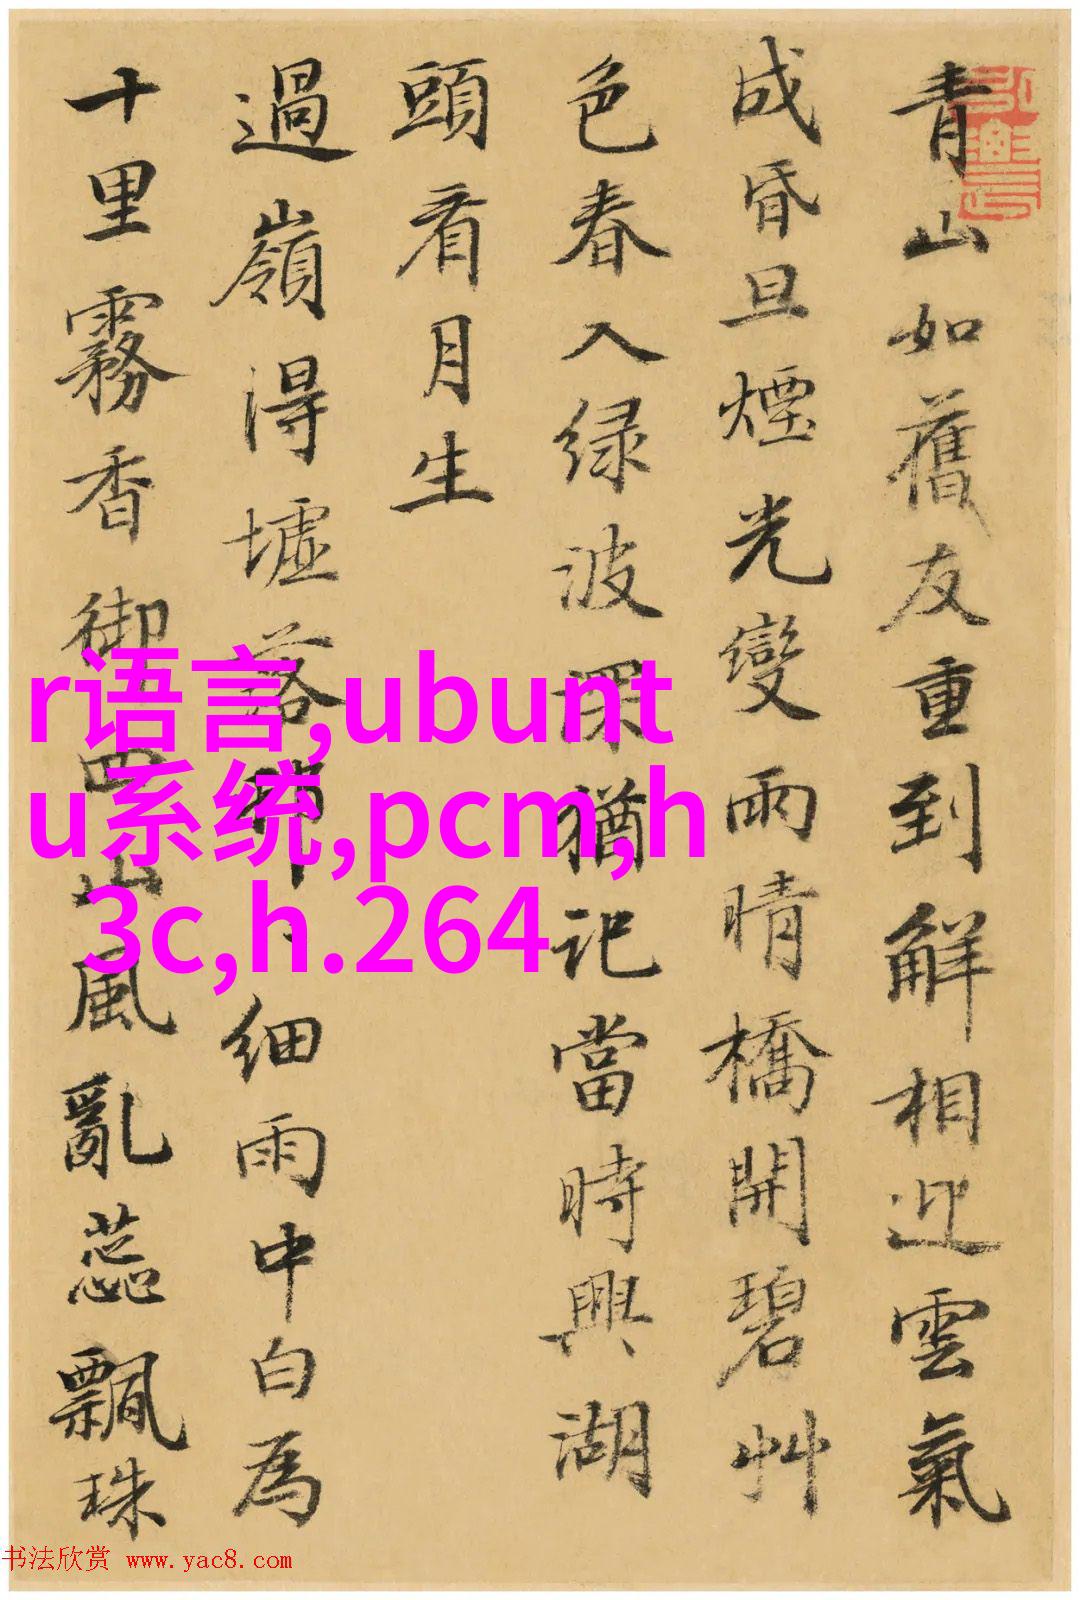 青山如舊友重到解相迎雲氣
成昏旦煙光變雨晴橋開碧艸
色春入绿波深猶記當時興湖
頭看月生
過嶺得墟落細雨中白為
十里霧香御四山風亂蕊飄珠
r语言,ubunt
u系统,pcm,h
3c,h.264
书法欣赏 www.yac8.com